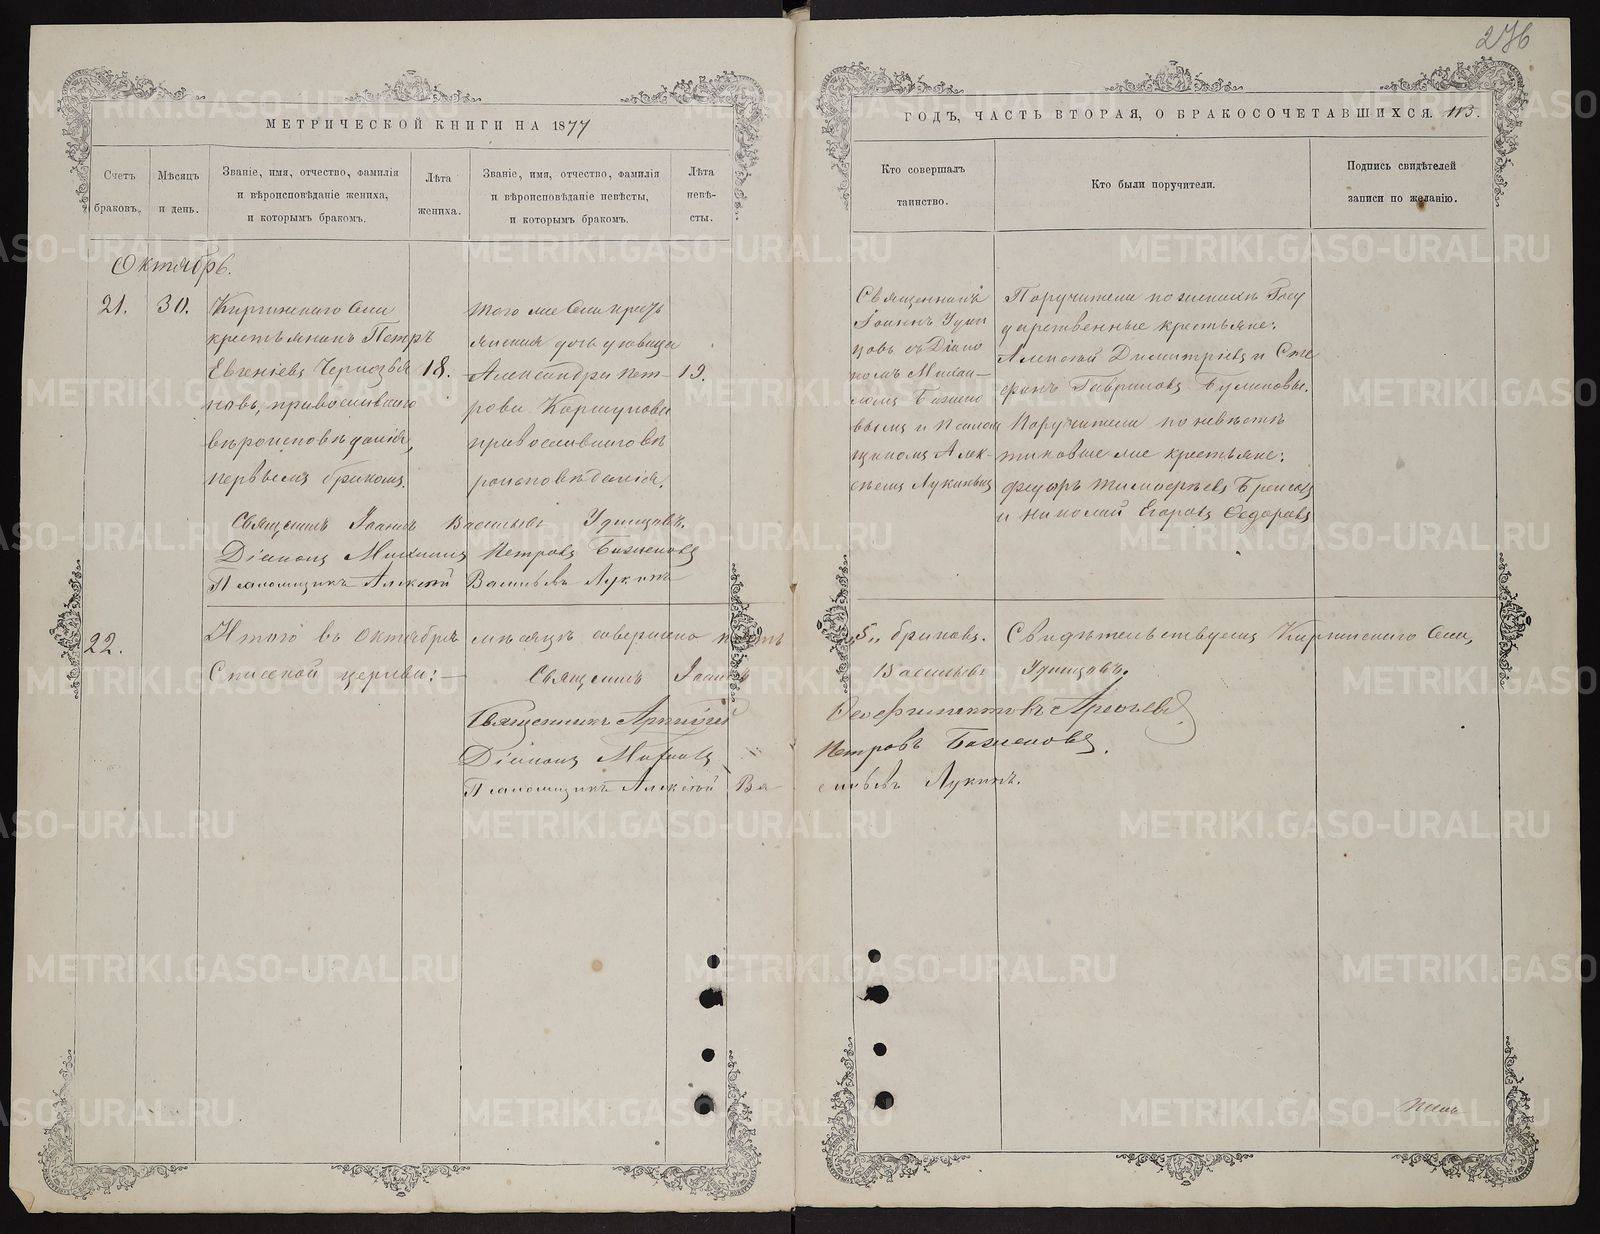 276
МЕТРИЧЕСКОЙ КНИГИ НА 1877
ГОДЪ, ЧАСТЬ ВТОРАЯ, О БРАКОСОЧЕТАВШИХСЯ. 113.
Счетъ
браковъ.
Мѣсяцъ
и день.
Званіе, имя, отчество, фамилія
и вѣроисповѣданіе жениха,
и которымъ бракомъ.
Лѣта
жениха.
Званіе, имя, отчество, фамилія
и вѣроисповѣданіе невѣсты,
и которымъ бракомъ.
Лѣта
невѣ-
сты.
Кто совершалъ
таинство.
Кто были поручители.
Подпись свидѣтелей
записи по желанію.
Октябрь.
21.
30.
Села
крестьянинъ Петръ
Евгеніевъ
новъ, православнаго
вѣроисповѣданія,
первымъ бракомъ.
18.
Того же Села кресть
янская дочь дѣвица
Александра Пет-
рова Коршунова
православнаго вѣ
роисповѣданія.
19.
Священникъ
Іоаннъ Удин
цовъ съ Діако
номъ Михаи-
ломъ Бажено
вымъ и Псалом
щикомъ Алек-
сѣемъ Лукинымъ
Поручители по женихѣ Госу
дарственные крестьяне:
Алексѣй Димитріевъ и Сте
фанъ Гавриловъ
Поручители по невѣстѣ
таковые же крестьяне:
Феодоръ Тимофѣевъ
и Николай Егоровъ Федоровъ
Священникъ Іоаннъ Васильевъ Удинцовъ.
Діаконъ Михаилъ Петровъ Баженовъ
Псаломщикъ Алексѣй Васильевъ Лукинъ
22.
Итого въ Октябрѣ мѣсяцѣ совершено пять
„5„ браковъ. Свидѣтельствуемъ Села,
Спасской церкви:— Священникъ Іоаннъ Васильевъ Удинцовъ.
Священникъ Аркадій
Діаконъ Михаилъ Петровъ Баженовъ.
Псаломщикъ Алексѣй Васильевъ Лукинъ.
METRIKI.GASO-URAL.RU